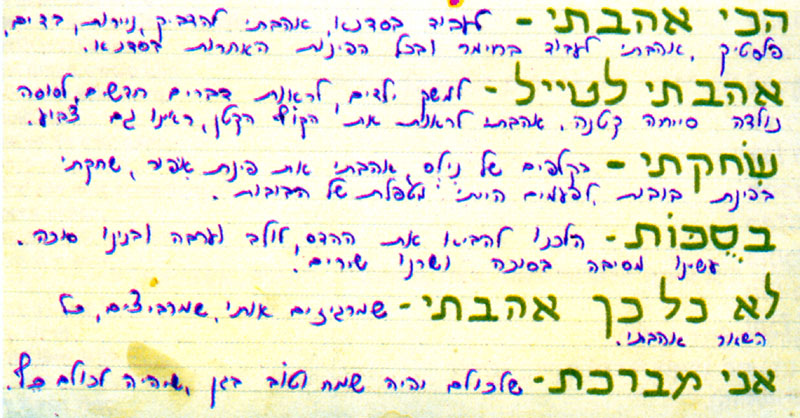 הכי אהבתי - לעבוד בסדנא, אהבתי להדביק, ניירות, בדים,
פלסטיק, אהבתי לעבוד בחימר ובכל הפינות האחרות בסדנא.
אהבתי לטייל - למשק ילדים, לראות דברים חדשים, לסוסה
נולדה סייחה קטנה, אהבתי לראות את הקוף הקטן, ראינו גם צבוע.
שׂחקתי - בקלפים של נילס, אהבתי את פינת איפור, שחקתי
בפינת בובות, לפעמים הייתי מטפלת של הבובות.
בסֻכּוֹת - הלכנו להביא את ההדס, לולב וערבה ובנינו סוכה.
עשינו מסיבה בסוכה ושרנו שירים!
לא כל כך אהבתי - שמרגיזים אותי, שמרביצים, כל
השאר אהבתי.
אני מברכת - שלכולם יהיה שמח וטוב בגן, שיהיה לכולם כיף.